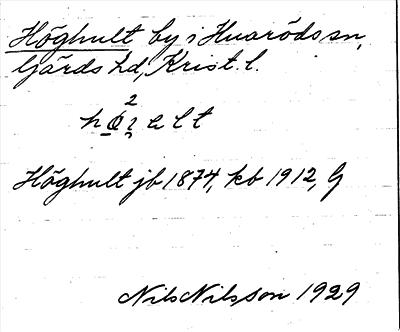 Höghult by i Huaröds sn,
Gärds hd, Krist. l.
Höghult jb 1874, kb 1912, G
Nils Nilsson 1929